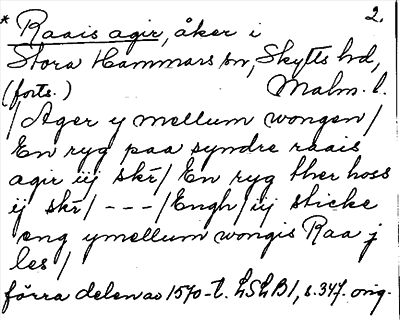 * Raais agir, åker i 2.
Stora Hammars sn, Skytts hd,
(forts.) Malm. l.
/ Ager y mellum wongen /
En ryg paa syndre raais
agir iij skr̄ / En ryg ther hoss
ij skr̄ / - - - / Engh / iij sticke
eng ymellum wongis Raa j
les /
förra delen av 1570-t. LSLB1, s. 347. orig.